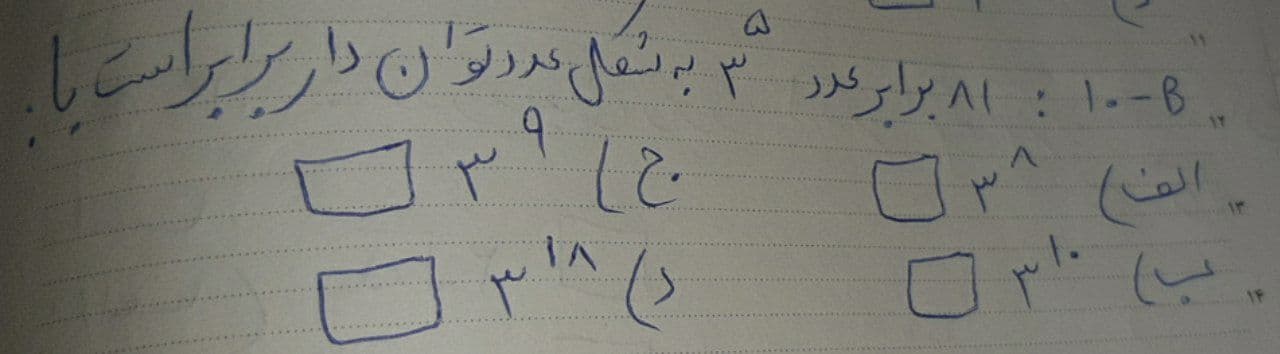 ۱۰-B : ۸۱ برابر عدد ۳^۵ به شکل عدد توان دار برابر است با:
الف) ۳^۸ □ ج) ۳^۹ □
ب) ۳^۱۰ □ د) ۳^۱۸ □
۱۱
۱۲
۱۳
۱۴